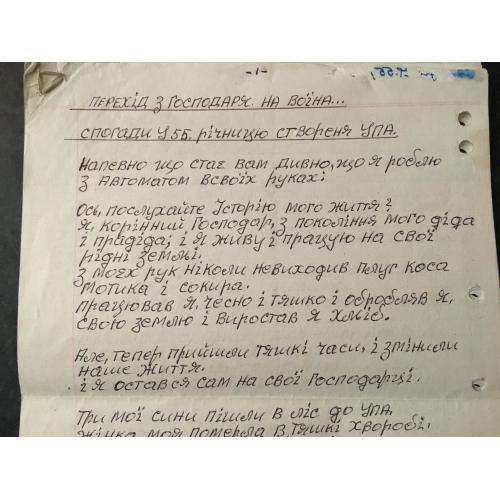 -1-
ПЕРЕХІД З ГОСПОДАРЯ НА ВОЇНА...
СПОГАДИ У 55. РІЧНИЦЮ СТВОРЕНЯ УПА.
НАПЕВНО ЩО СТАЄ ВАМ ДИВНО, ЩО Я РОБЛЮ
З АВТОМАТОМ ВСВОЇХ РУКАХ:
ОСЬ, ПОСЛУХАЙТЕ ІСТОРІЮ МОГО ЖИТТЯ:
Я, КОРІННИЙ ГОСПОДАР, З ПОКОЛІННЯ МОГО ДІДА
І ПРАДІДА; І Я ЖИВУ І ПРАЦУЮ НА СВОЇ
РІДНІ ЗЕМЛІ.
З МОЄХ РУК НІКОЛИ НЕВИХОДИВ ПЛУГ КОСА
МОТИКА І СОКИРА.
ПРАЦЮВАВ Я, ЧЕСНО І ТЯШКО І ОБРОБЛЯВ Я,
СВОЮ ЗЕМЛЮ І ВИРОСТАВ Я ХЛІБ.
АЛЕ, ТЕПЕР ПРИЙШЛИ ТЯШКІ ЧАСИ, І ЗМІНИЛИ
НАШЕ ЖИТТЯ.
І Я ОСТАВСЯ САМ НА СВОЇ ГОСПОДАРЦІ.
ТРИ МОЇ СИНИ ПІШЛИ В ЛІС ДО УПА.
ЖІНКА МОЯ ПОМЕРЛА В ТЯШКІ ХВОРОБІ.